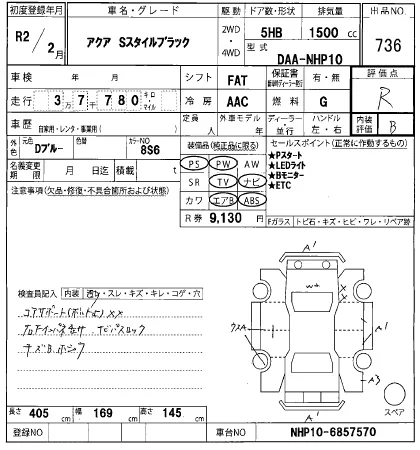 初度登録年月
R2 / 2月
車名・グレード
アクア Sスタイルブラック
駆動
2WD
・
4WD
ドア数・形状
5HB
排気量
1500 cc
型式
DAA-NHP10
出品NO.
736
車検 年 月
シフト FAT
保証書
有・無
評価点
R
走行 3万7千780 キロ・マイル
冷房 AAC
燃料 G
車歴 自家用・レンタ・事業用( )
定員 人
外車モデル 年
ディーラー・並行
ハンドル 左・右
内装評価 B
外色
元色 Dブルー
色替
カラーNO 8S6
名義変更期限 月 日迄
積載 t
装備品(純正品に限る)
PS PW AW
SR TV ナビ
カワ エアB ABS
R券 9,130 円
セールスポイント(正常に作動するもの)
★Pスタート
★LEDライト
★Bモニター
★ETC
注意事項(欠品・修復・不具合箇所および状態)
Fガラス トビ石・キズ・ヒビ・ワレ・リペア跡
検査員記入 内装 汚れ・スレ・キズ・キレ・コゲ・穴
A1
A1
A3
A1
スペア
長さ 405 cm
幅 169 cm
高さ 145 cm
登録NO
車台NO NHP10-6857570